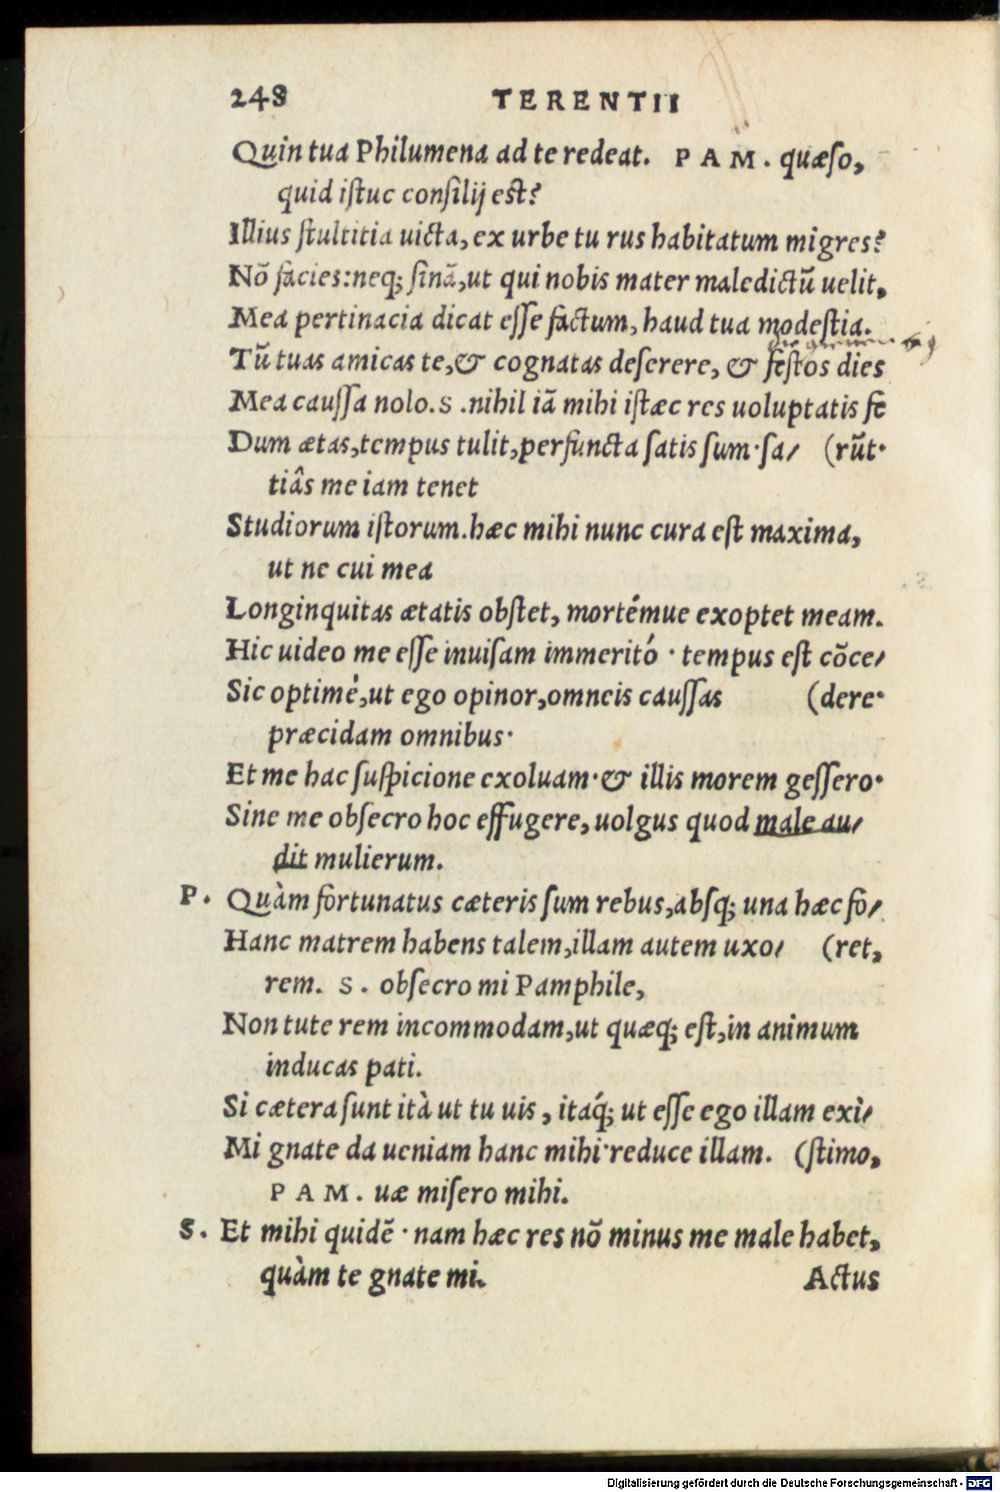 248 TERENTII
Quin tua Philumena ad te redeat. PAM. quæso,
quid istuc consilij est?
Illius stultitia uicta, ex urbe tu rus habitatum migres?
Nō facies: neq; sinā, ut qui nobis mater maledictū uelit,
Mea pertinacia dicat esse factum, haud tua modestia.
Tū tuas amicas te, & cognatas deserere, & festos dies
Mea caussa nolo. S. nihil iā mihi istæc res uoluptatis fe
Dum ætas, tempus tulit, perfuncta satis sum· sa/ (rūt·
tiâs me iam tenet
Studiorum istorum. hæc mihi nunc cura est maxima,
ut ne cui mea
Longinquitas ætatis obstet, mortémue exoptet meam.
Hic uideo me esse inuisam immeritó · tempus est cōce/
Sic optimé, ut ego opinor, omneis caussas (dere·
præcidam omnibus·
Et me hac suspicione exoluam· & illis morem gessero·
Sine me obsecro hoc effugere, uolgus quod male au/
dit mulierum.
P. Quàm fortunatus cæteris sum rebus, absq; una hæc fo/
Hanc matrem habens talem, illam autem uxo/ (ret,
rem. S. obsecro mi Pamphile,
Non tute rem incommodam, ut quæq; est, in animum
inducas pati.
Si cætera sunt ità ut tu uis, itaq́; ut esse ego illam exì/
Mi gnate da ueniam hanc mihi· reduce illam. (stimo,
PAM. uæ misero mihi.
S. Et mihi quidē · nam hæc res nō minus me male habet,
quàm te gnate mi. Actus
Digitalisierung gefördert durch die Deutsche Forschungsgemeinschaft - DFG